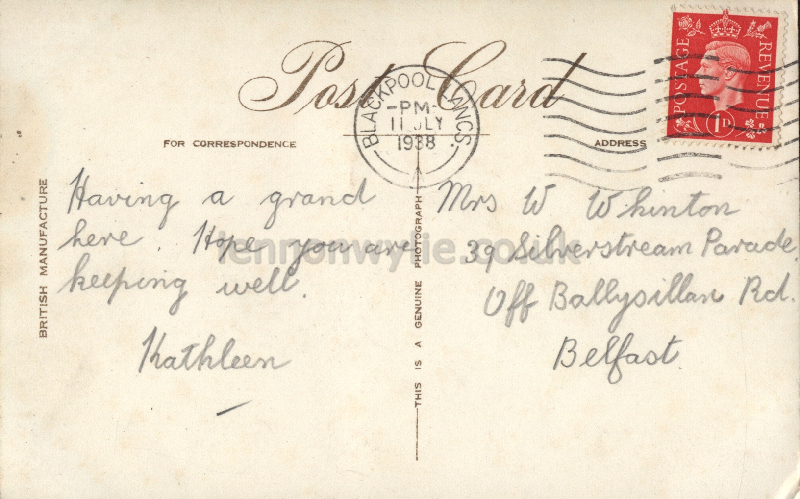 Post Card
POSTAGE
REVENUE
1D
BLACKPOOL LANCS.
-PM-
11 JLY
1938
FOR CORRESPONDENCE
ADDRESS
BRITISH MANUFACTURE
THIS IS A GENUINE PHOTOGRAPH
Having a grand
here. Hope you are
keeping well.
Kathleen
Mrs W Whinton
39 Silverstream Parade
Off Ballysillan Rd.
Belfast.
lennonwylie.co.uk